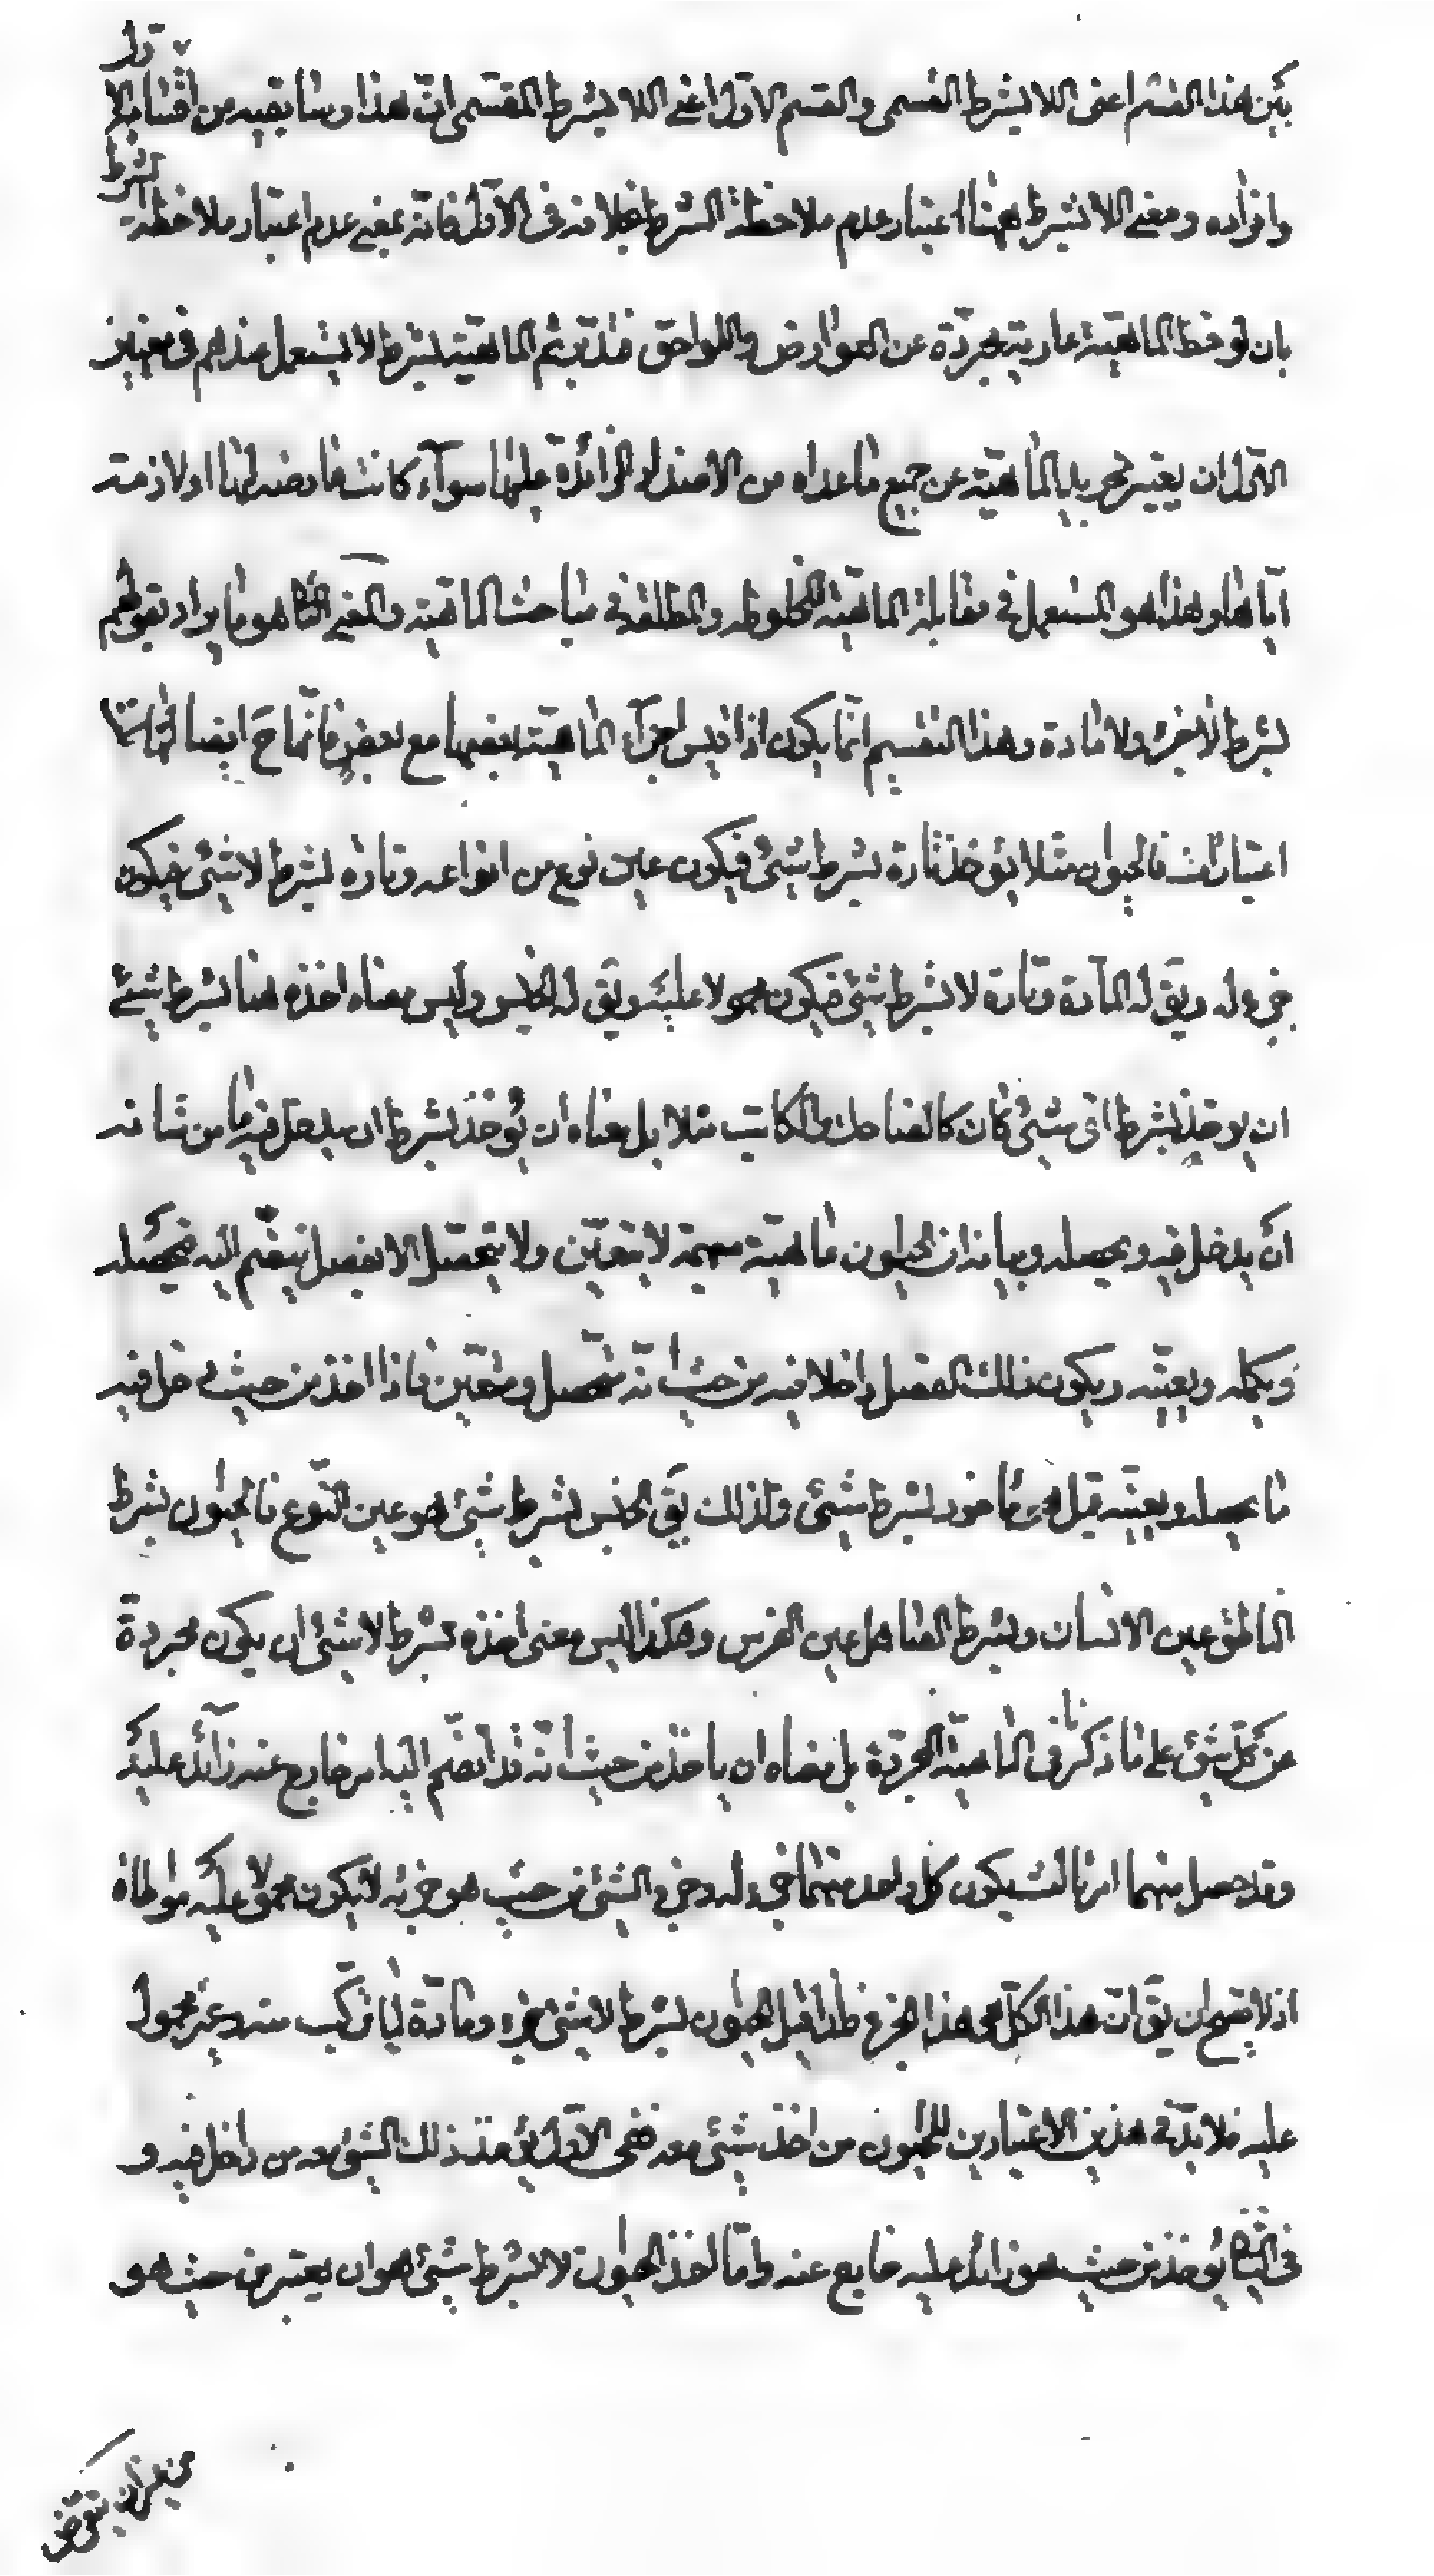 بين هذا القسم اعنى اللا بشرط القسمى والقسم الاول اعنى اللا بشرط المقسمى ان هذا وسابقيه من اقسام الاول
وافراده ومعنى اللا بشرط ههنا اعتبار عدم ملاحظة الشرط بخلافه فى الاول فانه بمعنى عدم اعتبار ملاحظة الشرط
بان لوحظ الماهية عارية مجردة عن العوارض واللواحق فتدبر ثم الماهية بشرط لا يستعمل عندهم فى معنيين
الاول ان يعتبر تجريد الماهية عن جميع ما عداه من الامور الزائدة عليها سوآء كانت عارضه لها او لازمة
اياها وهذا هو المستعمل فى مقابلة الماهية المخلوطه والمطلقه فى مباحث الماهية والمعنى الثانى هو ما يراد بقولهم
بشرط لا جزء ولا مادة وهذا التقسيم انما يكون اذا قيس اجزآء الماهية بعضها مع بعض فانما ح ايضا
اعتبارات فالحيوان مثلا يؤخذ تارة بشرط شئ فيكون عين نوع من انواعه وتارة بشرط لا شئ فيكون
جزء له ويق له المادة وتارة لا بشرط شئ فيكون محمولا عليه ويق له الجنس وليس معناه اخذه هنا بشرط شئ
ان يوخذ بشرط اى شئ كان كالضاحك والكاتب مثلا بل معناه ان يؤخذ بشرط ان يدخل فيه ما من شانه
ان يدخل فيه ويحصله وبيانه ان الحيوان ماهية مبهمة لا يتعين ولا يتحصل الا بفصل ينضم اليه فيحصله
ويكمله ويعينه ويكون ذلك الفصل داخلا فيه من حيث انه متحصل ومتعين فاذا اخذ من حيث دخل فيه
ما يحصله ويعينه قيل هو ماخوذ بشرط شئ ولذلك يق الجنس بشرط شئ هو عين النوع فالحيوان بشرط
الناطق عين الانسان وبشرط الصاهل عين الفرس وهكذا ليس معنى اخذه بشرط لا شئ ان يكون مجردة
عن كل شئ على ما ذكرنا فى الماهية المجردة بل معناه ان ياخذ من حيث انه قد انضم اليه امر خارج عنه زآئد عليه
وقد حصل منهما امر ثالث يكون كل واحد منهما جزء له وجزء الشئ من حيث هو جزئه لا يكون محمولا عليه مواطاة
اذ لا يصح ان يق ان هذا الكل هو هذا الجزء فلذا قيل الحيوان بشرط لا شئ جزء ومادة لما تركب منه وغير محمول
عليه فلا بد فى هذين الاعتبارين للحيوان من اخذ شئ معه ففى الاول يؤخذ ذلك الشئ معه من داخل فيه و
فى الثانى يؤخذ من حيث هو زائد عليه خارج عنه واما اخذ الحيوان لا بشرط شئ هو ان يعتبر من حيث هو
من غير ان